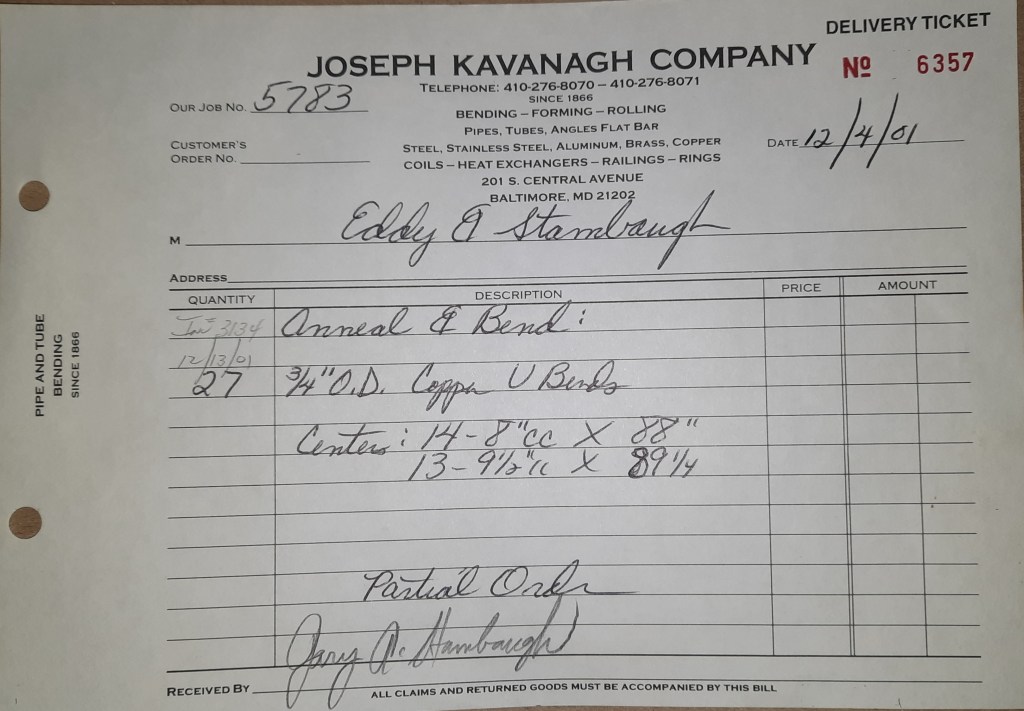 DELIVERY TICKET
JOSEPH KAVANAGH COMPANY
Nº 6357
TELEPHONE: 410-276-8070 – 410-276-8071
SINCE 1866
OUR JOB NO. 5783
BENDING – FORMING – ROLLING
PIPES, TUBES, ANGLES FLAT BAR
CUSTOMER'S
ORDER NO.
STEEL, STAINLESS STEEL, ALUMINUM, BRASS, COPPER
DATE 12/4/01
COILS – HEAT EXCHANGERS – RAILINGS – RINGS
201 S. CENTRAL AVENUE
BALTIMORE, MD 21202
M Eddy & Stambaugh
ADDRESS
QUANTITY DESCRIPTION PRICE AMOUNT
Inv# 3134 Anneal & Bend:
12/13/01
27 3/4" O.D. Copper U Bends
Centers: 14 - 8" cc X 88"
13 - 9 1/2" cc X 89 1/4
Partial Order
Gary A. Stambaugh
RECEIVED BY
ALL CLAIMS AND RETURNED GOODS MUST BE ACCOMPANIED BY THIS BILL
PIPE AND TUBE
BENDING
SINCE 1866